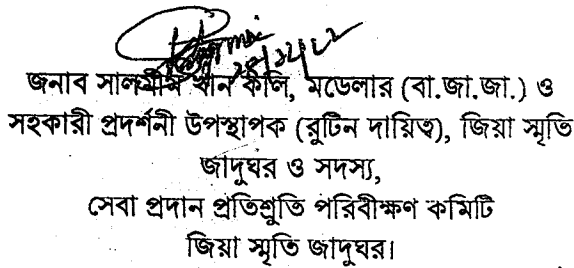 জনাব সালমীন খান কলি, মডেলার (বা.জা.জা.) ও
সহকারী প্রদর্শনী উপস্থাপক (রুটিন দায়িত্ব), জিয়া স্মৃতি
জাদুঘর ও সদস্য,
সেবা প্রদান প্রতিশ্রুতি পরিবীক্ষণ কমিটি
জিয়া স্মৃতি জাদুঘর।